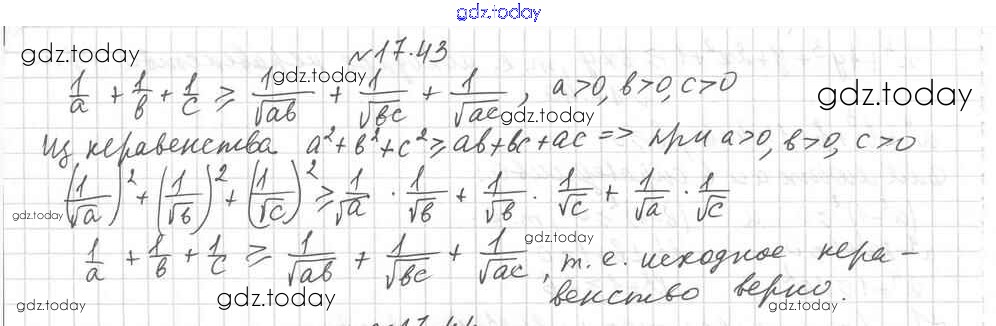 gdz.today
№17.43
gdz.today gdz.today
1/a + 1/b + 1/c ≥ 1/√ab + 1/√bc + 1/√ac, a>0, b>0, c>0
gdz.today gdz.today
Из неравенства a² + b² + c² ≥ ab+bc+ac => при a>0, b>0, c>0
(1/√a)² + (1/√b)² + (1/√c)² ≥ 1/√a · 1/√b + 1/√b · 1/√c + 1/√a · 1/√c
gdz.today gdz.today
1/a + 1/b + 1/c ≥ 1/√ab + 1/√bc + 1/√ac, т.е. исходное нера-
венство верно.
gdz.today gdz.today gdz.today